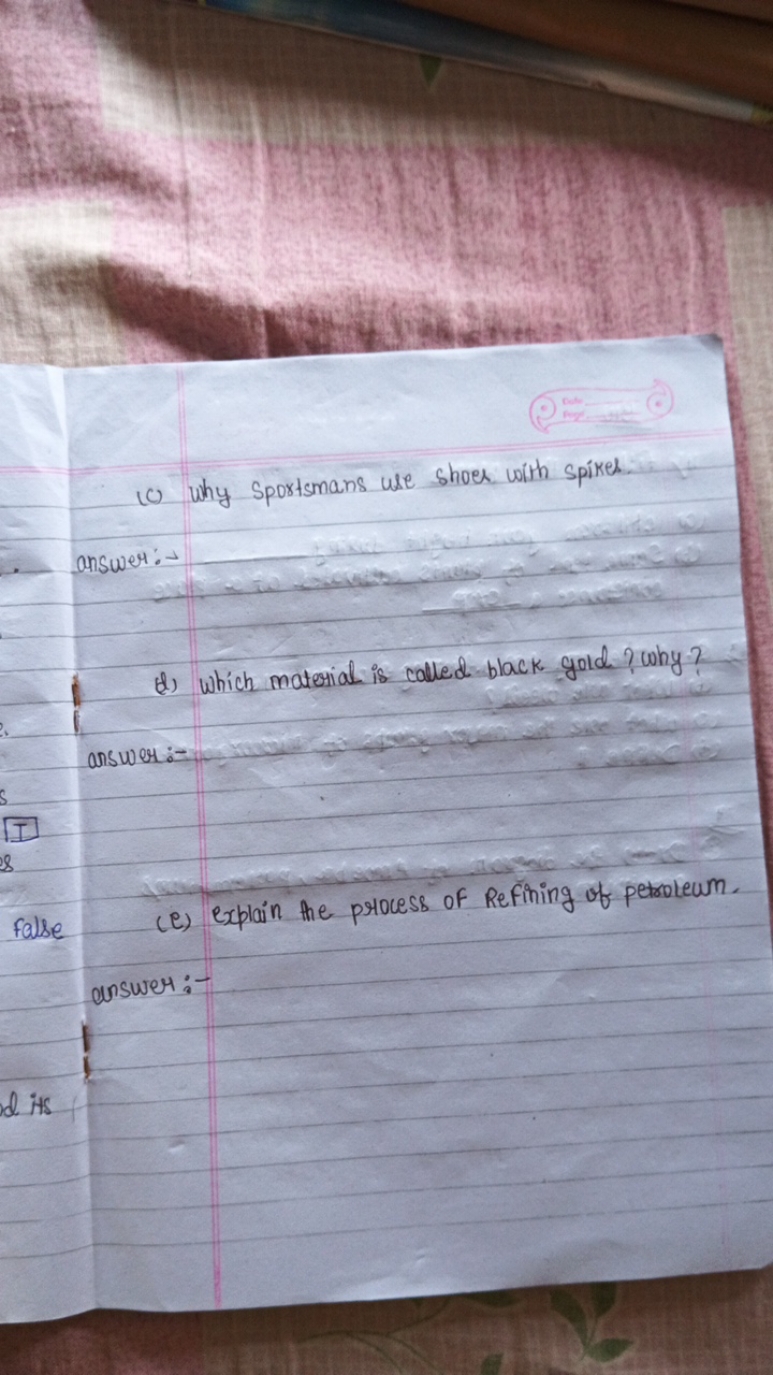 Date
Page
(c) why sportsmans use shoes with spikes.
answer :-
d) which material is called black gold ? why ?
answer :-
s
I
es
(e) explain the process of Refining of petroleum.
False
answer :-
od its